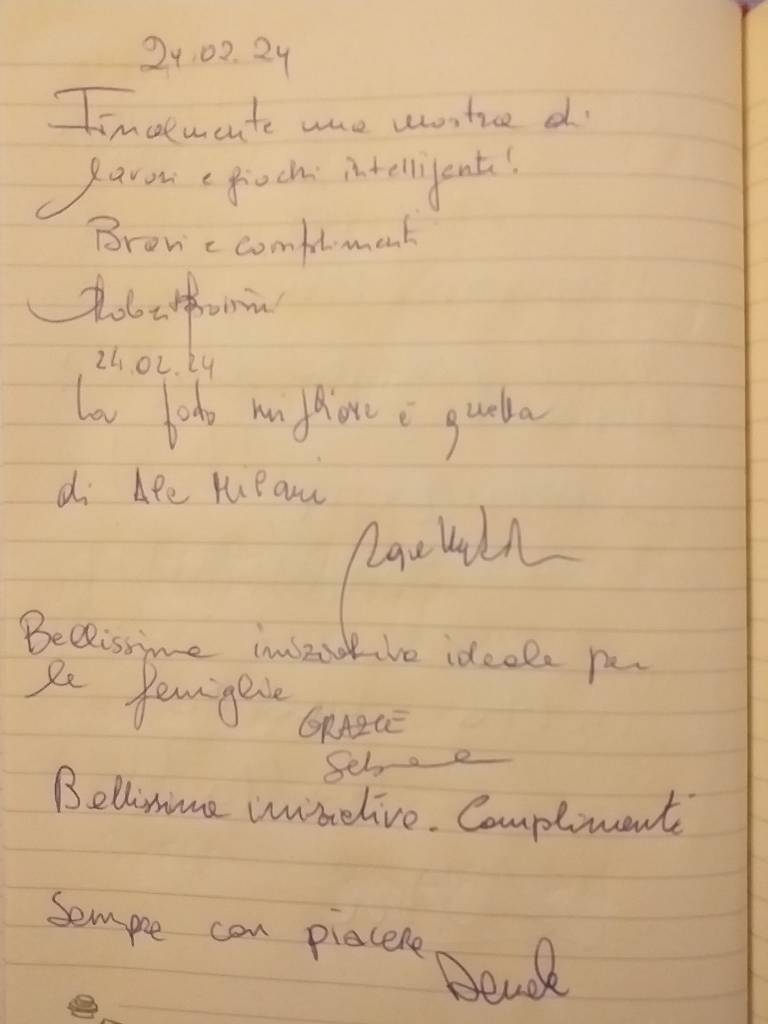 24.02.24
Finalmente una mostra di
lavori e giochi intelligenti!
Bravi e complimenti
24.02.24
La foto migliore è quella
di Ale Milani
Bellissima iniziativa ideale per
le famiglie
GRAZIE
Bellissima iniziativa. Complimenti
Sempre con piacere